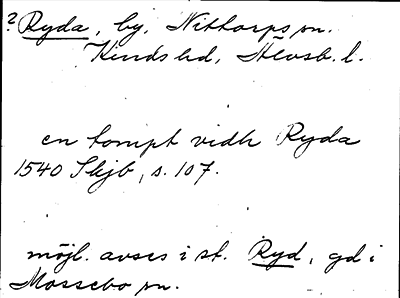 ? Ryda, by, Nittorps sn.
Kinds hd, Älvsb. l.
en tompt vidh Ryda
1540 Skjb, s. 107.
möjl. avses i st. Ryd, gd i
Mossebo sn.